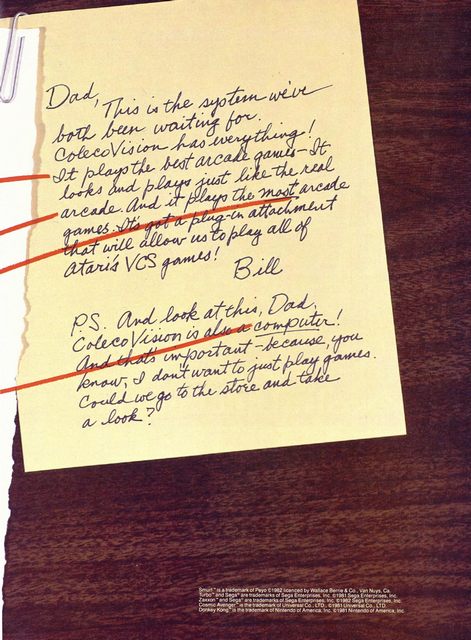 Dad,
This is the system we've
both been waiting for.
ColecoVision has everything!
It plays the best arcade games-It
looks and plays just like the real
arcade. And it plays the most arcade
games. It's got a plug-in attachment
that will allow us to play all of
Atari's VCS games!
Bill
P.S. And look at this, Dad.
ColecoVision is also a computer!
And that's important-because, you
know, I don't want to just play games.
Could we go to the store and take
a look?
Smurf™ is a trademark of Peyo ©1982 licenced by Wallace Berrie & Co., Van Nuys, Ca.
Turbo™ and Sega® are trademarks of Sega Enterprises, Inc. ©1981 Sega Enterprises, Inc.
Zaxxon™ and Sega® are trademarks of Sega Enterprises, Inc. ©1982 Sega Enterprises, Inc.
Cosmic Avenger™ is the trademark of Universal Co., LTD., ©1981 Universal Co., LTD.
Donkey Kong™ is the trademark of Nintendo of America, Inc. ©1981 Nintendo of America, Inc.